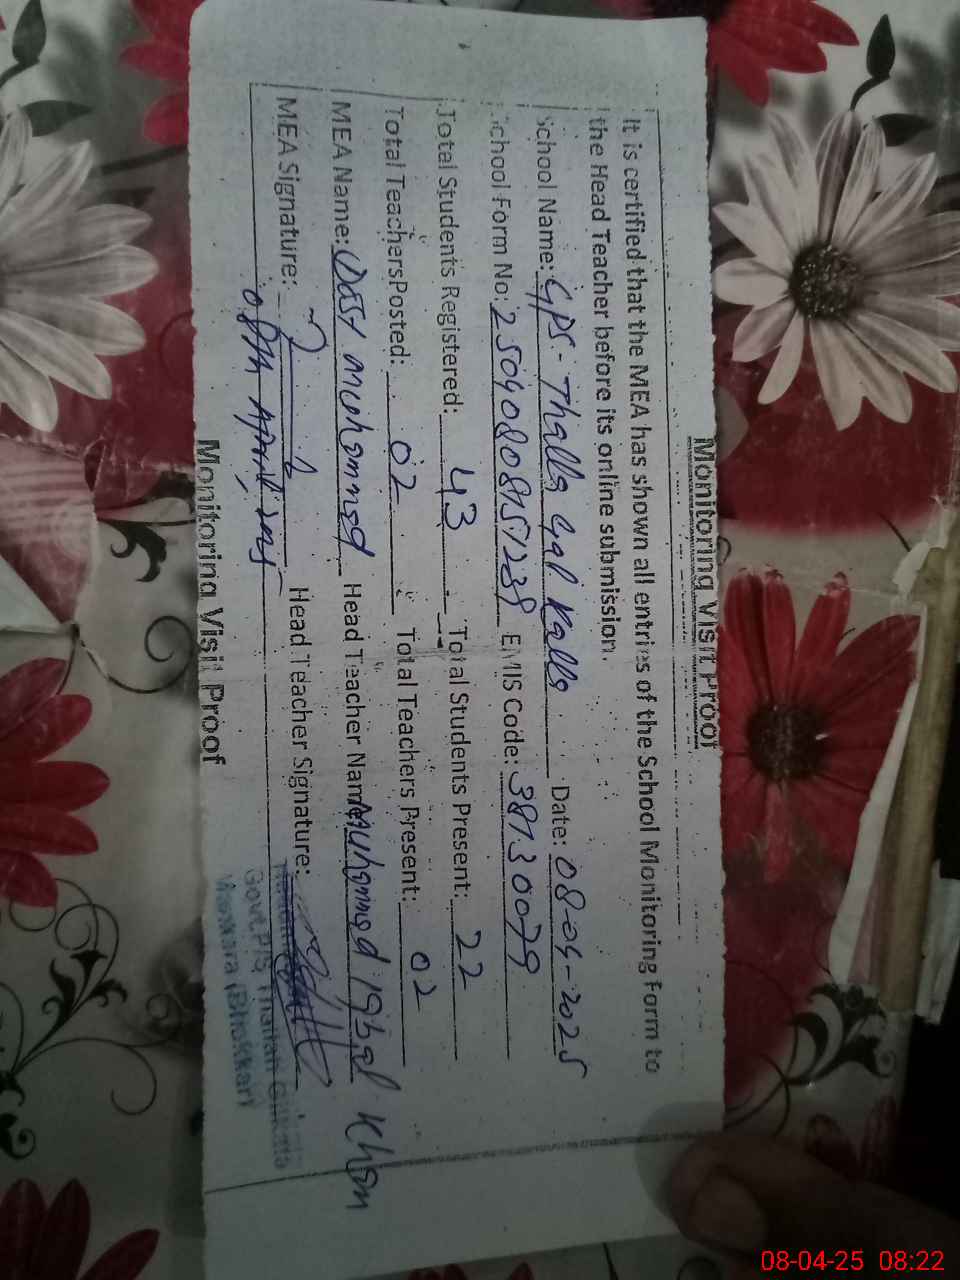 Monitoring Visit Proof
It is certified that the MEA has shown all entries of the School Monitoring Form to
the Head Teacher before its online submission.
School Name: GPS. Thalla Gul Kalla Date: 08-04-2025
School Form No: EMIS Code: 38130079
Total Students Registered: 43 Total Students Present: 22
Total Teachers Posted: 02 Total Teachers Present: 02
MEA Name: Muhammad Head Teacher Name: Muhammad Iqbal Khan
MEA Signature: Head Teacher Signature:
08th April, 2025
Govt P/S
(Bhakkar)
Monitoring Visit Proof
08-04-25 08:22